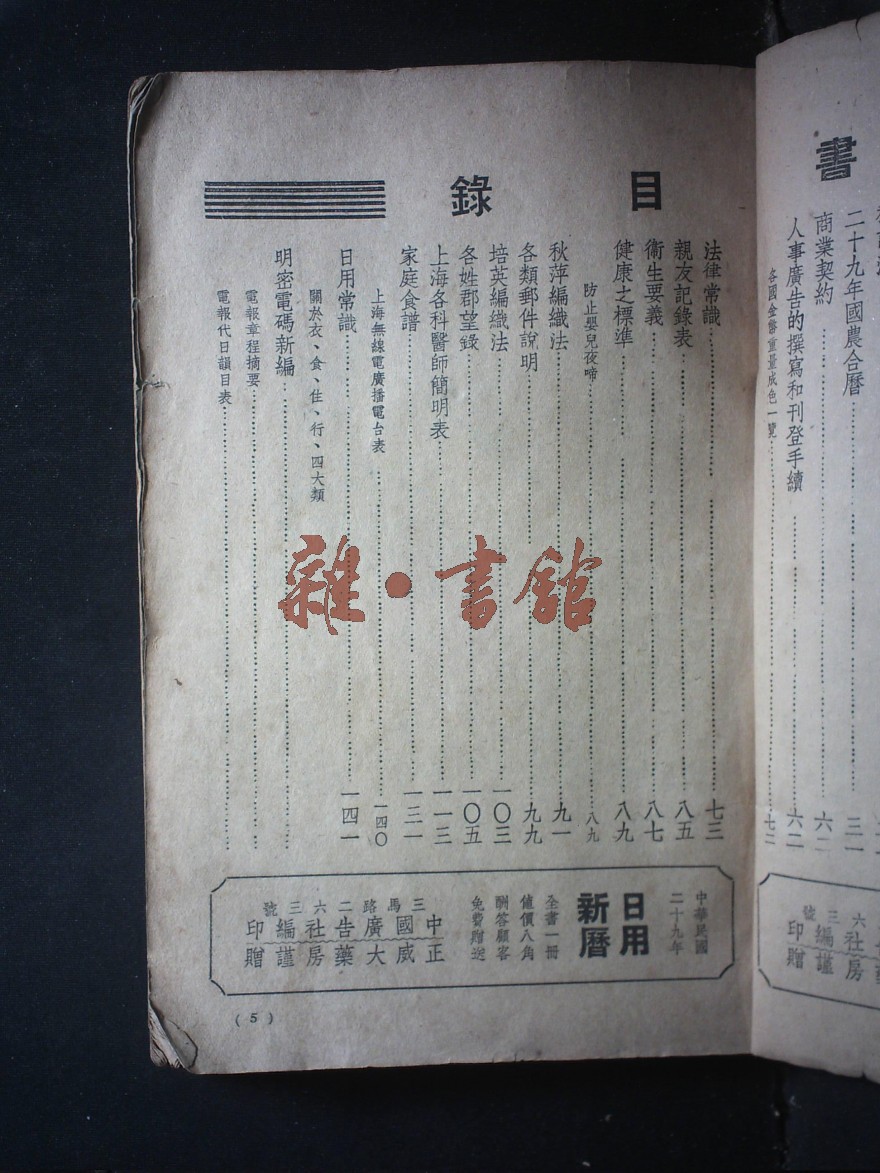 書
二十九年國農合曆……三一
商業契約……六二
人事廣告的撰寫和刊登手續……六二
各國金幣重量成色一覽……七二
目錄
法律常識……七三
親友記錄表……八五
衞生要義……八七
健康之標準……八九
防止嬰兒夜啼……八九
秋萍編織法……九一
各類郵件說明……九九
培英編織法……一〇三
各姓郡望錄……一〇五
上海各科醫師簡明表……一一三
家庭食譜……一三一
上海無線電廣播電台表……一四〇
日用常識……一四一
關於衣、食、住、行、四大類
明密電碼新編……
電報章程摘要……
電報代日韻目表……
中華民國
二十九年
日用
新曆
全書一冊
値價八角
酬答顧客
免費贈送
三馬路二六三號
中國廣告社編印
正威大藥房謹贈
(5)
雜·書館